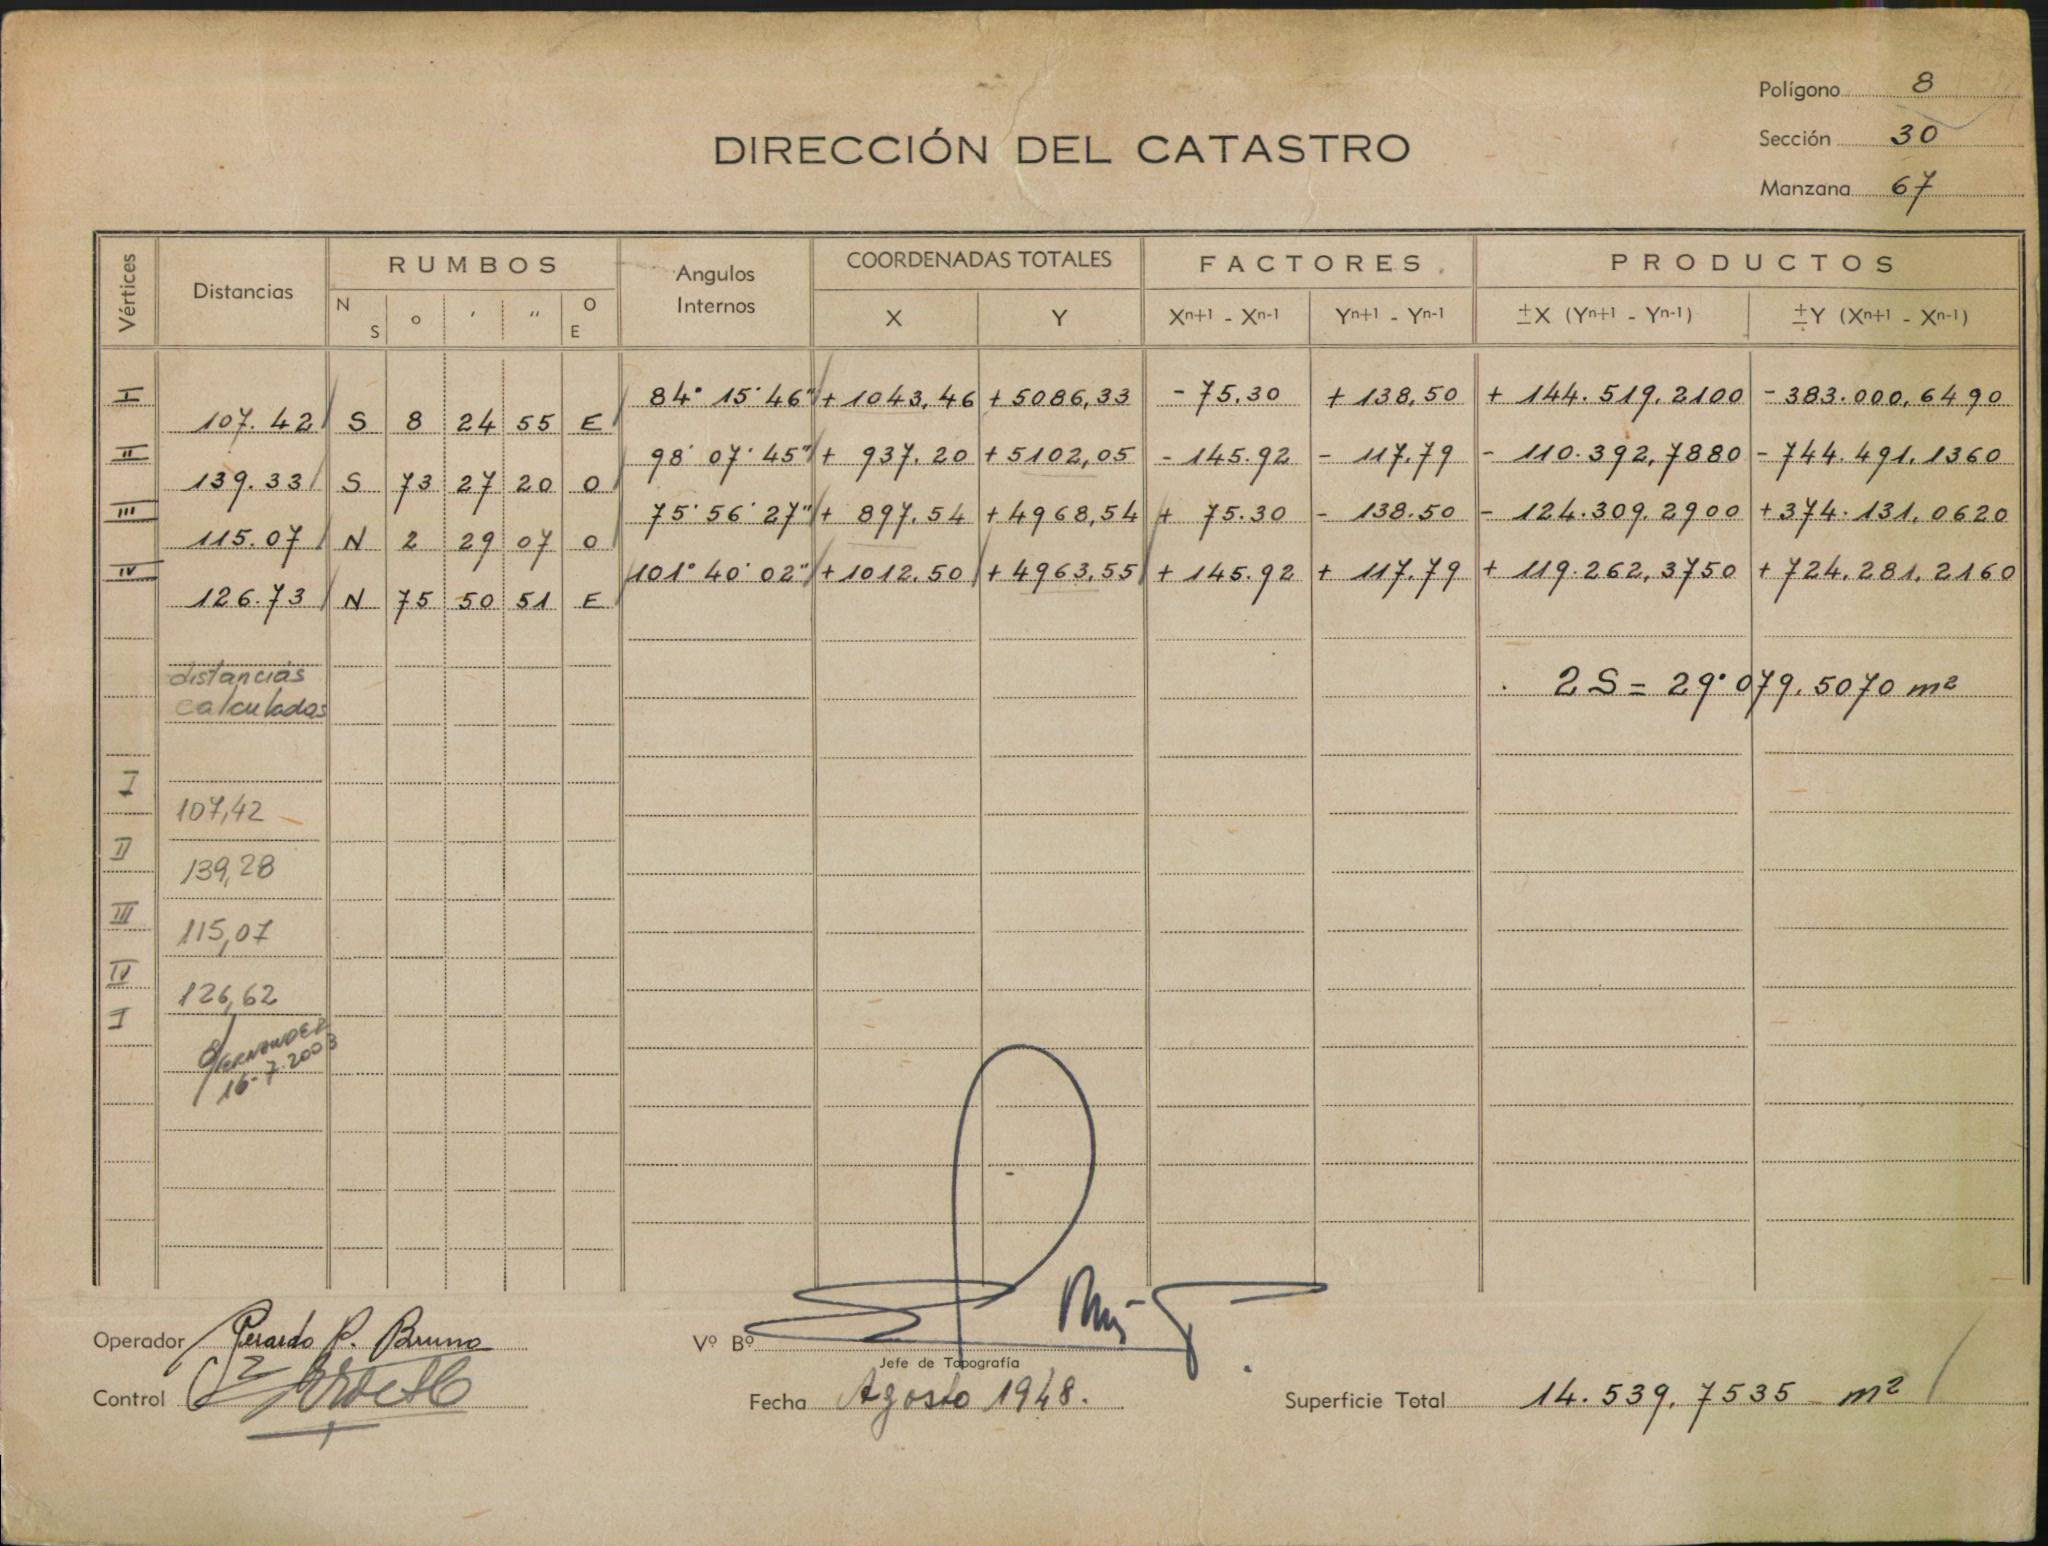 Polígono 8
DIRECCIÓN DEL CATASTRO
Sección 30
Manzana 67
Vértices Distancias RUMBOS Angulos Internos COORDENADAS TOTALES FACTORES PRODUCTOS
N S ° ' " O E X Y Xn+1 - Xn-1 Yn+1 - Yn-1 ±X (Yn+1 - Yn-1) ±Y (Xn+1 - Xn-1)
I 84° 15' 46" + 1043,46 + 5086,33 - 75.30 + 138,50 + 144.519,2100 - 383.000,6490
107.42 S 8 24 55 E
II 98° 07' 45" + 937.20 + 5102,05 - 145.92 - 117.79 - 110.392,7880 - 744.491,1360
139.33 S 73 27 20 O
III 75° 56' 27" + 897.54 + 4968,54 + 75.30 - 138.50 - 124.309.2900 + 374.131,0620
115.07 N 2 29 07 O
IV 101° 40' 02" + 1012.50 + 4963,55 + 145.92 + 117.79 + 119.262,3750 + 724.281,2160
126.73 N 75 50 51 E
distancias
calculadas
2 S = 29.079.5070 m²
I
107,42
II
139,28
III
115,07
IV
126,62
I
16-7-2003
Operador Gerardo P. Bruno
Vº Bº
Jefe de Topografía
Control
Fecha Agosto 1948.
Superficie Total 14.539,7535 m²